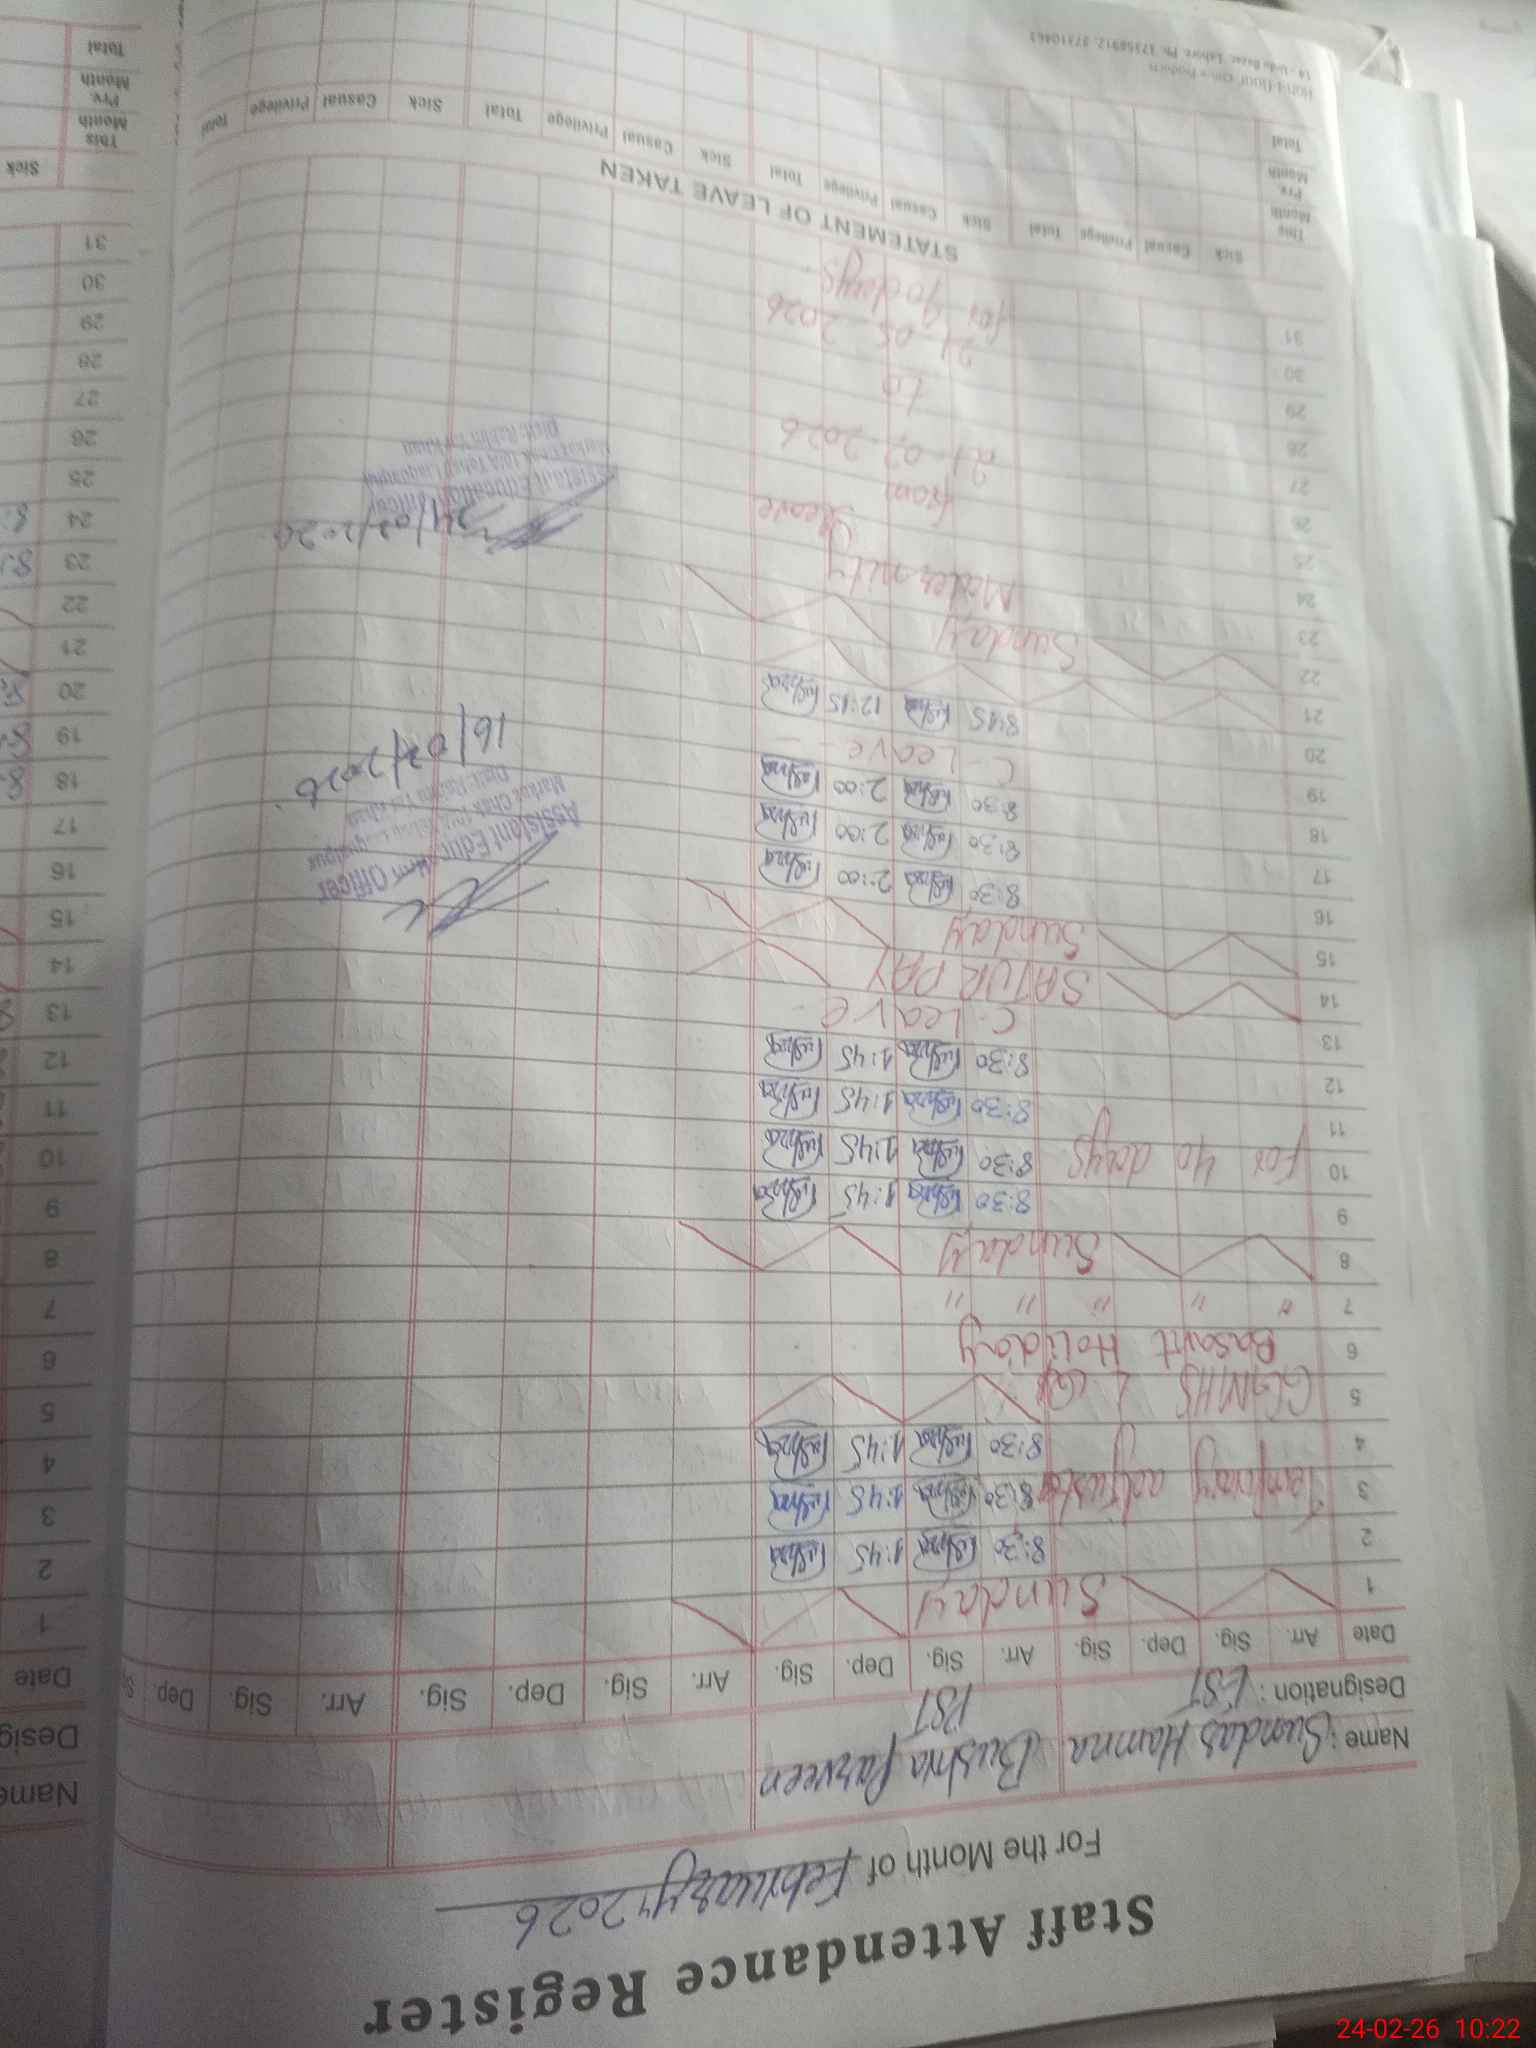 Staff Attendance Register
For the Month of February, 2026
Name : Sundas Hamna Bushra Parveen
Designation : EST PST
Date Arr. Sig. Dep. Sig. Arr. Sig. Dep. Sig. Arr. Sig. Dep. Sig. Arr. Sig. Dep.
1 Sunday
2 8:30 Bushra 1:45 Bushra
3 Temporary adjusted 8:30 Bushra 1:45 Bushra
4 8:30 Bushra 1:45 Bushra
5 GGMHS
6 Basant Holiday
7 " " " " "
8 Sunday
9 8:30 Bushra 1:45 Bushra
10 For 40 days 8:30 Bushra 1:45 Bushra
11 8:30 Bushra 1:45 Bushra
12 8:30 Bushra 1:45 Bushra
13 C-Leave
14 SATURDAY
15 Sunday
16 8:30 Bushra 2:00 Bushra
17 8:30 Bushra 2:00 Bushra
18 8:30 Bushra 2:00 Bushra
19 C-Leave
20 8:45 Bushra 12:15 Bushra
21
22 Sunday
23
24 Maternity
25 Leave
26 from
27 21-02-2026
28
29 to
30 21-05-2026
31 for 90 days.
Assistant Education Officer
Markaz Chak
Distt. Rahim Yar Khan
16/02/2026
Assistant Education Officer
Distt. Rahim Yar Khan
24/02/2026
STATEMENT OF LEAVE TAKEN
Sick Casual Privilege Total Sick Casual Privilege Total Sick Casual Privilege Total Sick Casual Privilege Total
This Month
Prv. Month
Total
14 - Urdu Bazar, Lahore. Ph:
Name
Desig
Date
1
2
3
4
5
6
7
8
9
10
11
12
13
14
15
16
17
18
19
20
21
22
23
24
25
26
27
28
29
30
31
Sick
This Month
Prv. Month
Total
24-02-26 10:22